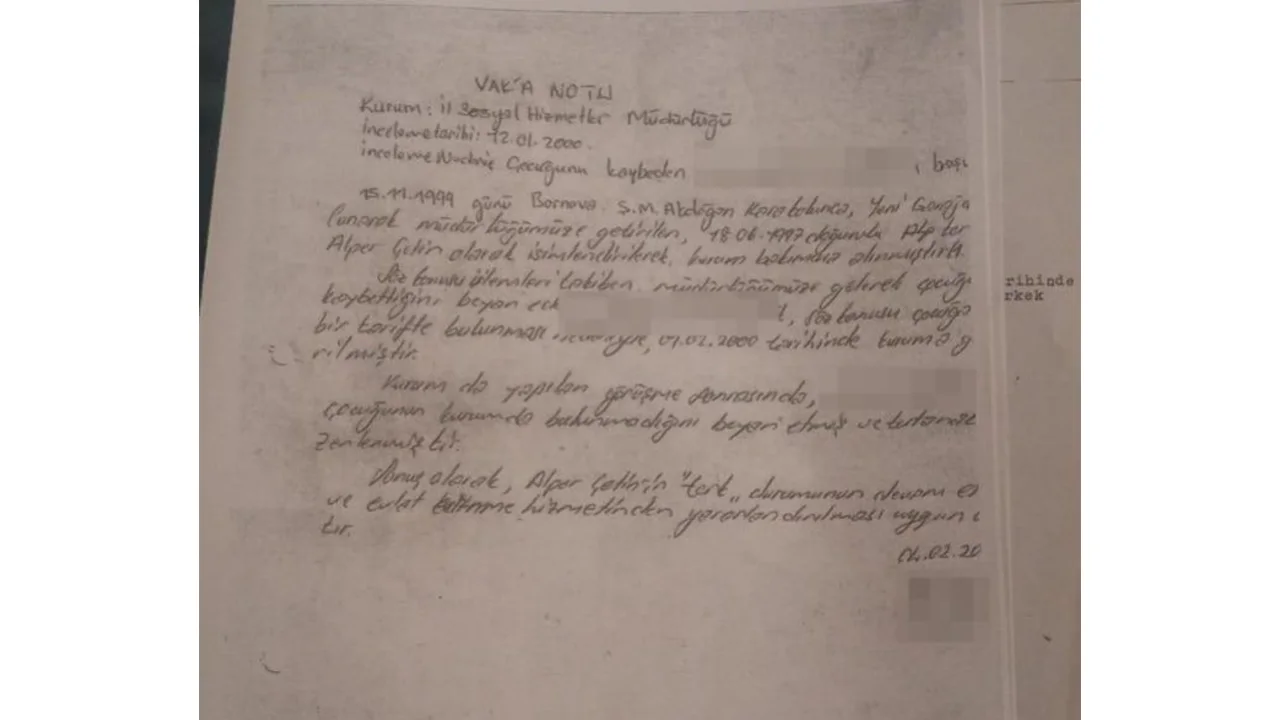 VAK'A NOTU
Kurum: İl Sosyal Hizmetler Müdürlüğü
İnceleme tarihi: 12.01.2000.
İnceleme Nedeni: Çocuğunu kaybeden , başı
15.11.1999 günü Bornova Ş.M. Akdoğan Karakolunca, Yeni Garaja
lunarak müdürlüğümüze getirilen, 18.06.1997 doğumlu
Alper Çetin olarak isimlendirilerek, kurum bakımına alınmıştır.
Söz konusu işlemleri takiben, müdürlüğümüze gelerek çocuğu
kaybettiğini beyan ede , söz konusu çocuğa
bir tarifte bulunması , 01.02.2000 tarihinde kuruma g
rilmiştir.
Kurum da yapılan görüşme sonrasında,
çocuğunun kurumda bulunmadığını beyan etmiş ve tutanak
zenlenmiştir.
Sonuç olarak, Alper Çetin'in "terk" durumunun devam e
ve evlat edinme hizmetinden yararlandırılması uygun
tır.
02.20
rihinde
rkek